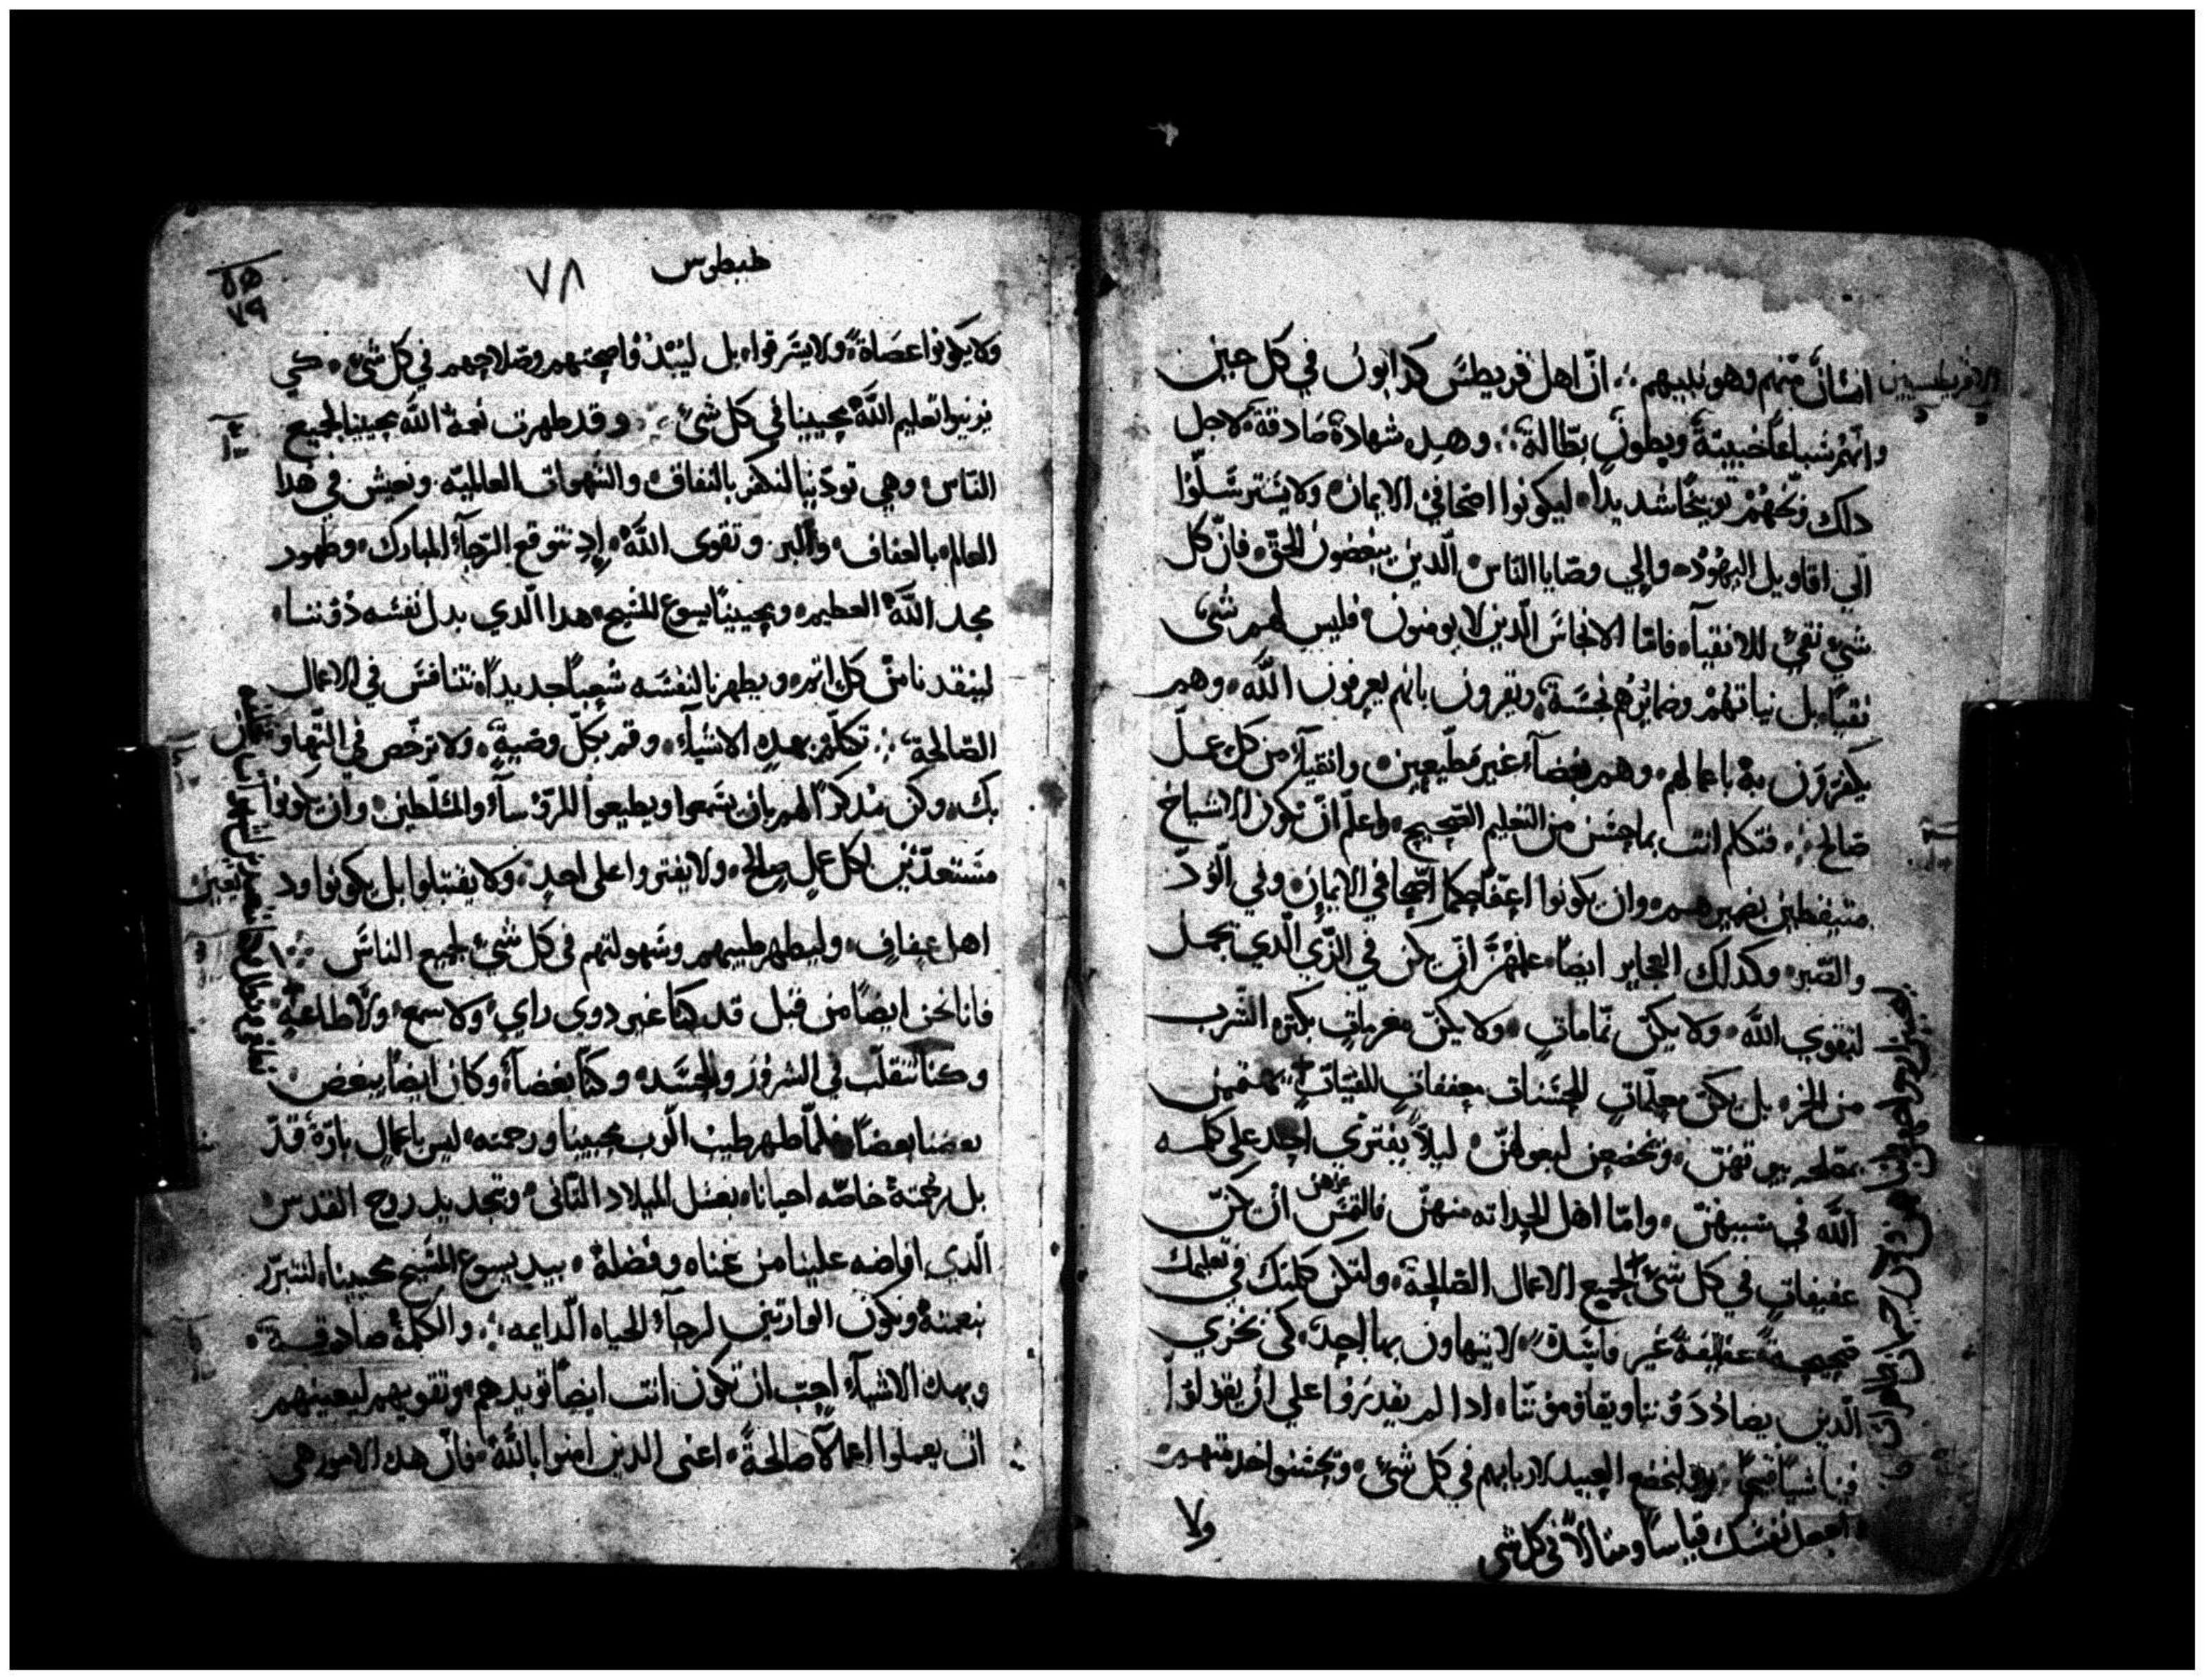 انسانٌ منهم وهو نبيهم ؞ انّ اهل قريطس كدابون في كل حين
وانهم سباعاً خبيثة وبطون بطّالة ؞ وهده شهادة صادقة لاجل
دلك وبّخهم توبيخاً شديداً ليكونوا اصحا في الايمان ولا يسترسلوا
الى اقاويل اليهود والي وصايا الناس الّدين يبغضون الحق فانّ كل
شي نقي للانقياء فاما الانجاس الّدين لا يومنون فليس لهم شي
نقياً بل نياتهم وضمائرهم نجسة ويقرون بانهم يعرفون الله وهم
يكفرون به باعمالهم وهم بغضاء غير مطيعين وانقياء من كل عمل
صالح ؞ فتكلم انت بما حسن من التعليم الصحيح واعلم ان تكون الاشياخ
متيقظين بضميرهم وان يكونوا اعفا حكما اصحا في الايمان وفي الود
والصبر وكدلك العجايز ايضاً علمهن ان يكن في الزي الّدي يجمل
لتقوى الله ولا يكن نمامات ولا يكن مغرمات بكثرة الشرب
من الخمر بل يكن معلمات للحسنات معففات للفتيات
بيوتهن ويخضعن لبعولهن ليلا يفتري احد على كلمة
الله في سببهن وامّا اهل الحداثه منهن فالتمس ان يكن
عفيفات في كل شي لجميع الاعمال الصالحة ولتكن كلمتك في تعليمك
صحيحة عفيفة غير فاسدة لا يتهاون بها احد كي يخزي
الّدين يضاددوننا ويقاوموننا ادا لم يقدروا علي ان يقولوا
فينا شياً قبيحاً ليخضع العبيد لاربابهم في كل شي ويحسنوا خدمتهم
واجعل نفسك قياساً ومثالاً في كل شي
ولا
طيطوس
٧٨
ولا يكونوا عصاة ولا يسرقوا بل ليبدوا صحتهم وصلاحهم في كل شي كي
يزينوا تعليم الله محيينا في كل شي ؞ وقد ظهرت نعمة الله محيينا لجميع
الناس وهي تودبنا لنكفر بالنفاق والشهوات العالمية ونعيش في هدا
العالم بالعفاف والبر وتقوى الله اد نتوقع الرجاء المبارك وظهور
مجد الله العظيم ومحيينا يسوع المسيح هدا الّدي بدل نفسه دوننا
لينقدنا من كل اثم ويطهرنا لنفسه شعباً جديداً نتنافس في الاعمال
الصالحة ؞ تكلّم بهده الاشياء وقم بكل وصية ولا ترخص في التهاون
بك وكن مدكراً لهم بان يسمعوا ويطيعوا للروساء والمسلطين وان يكونوا
مستعدّين لكل عمل صالح ولا يفتروا على احد ولا يقتتلوا بل يكونوا ود
يعين
اهل عفاف وليظهر طيبهم وسهولتهم في كل شي لجميع الناس
فانا نحن ايضاً من قبل قد كنا غير دوي راي ولا سمع ولا طاعة
وكنا نتقلّب في الشرور والحسد وكنا بغضاء وكان ايضاً يبغض
بعضنا بعضاً فلمّا ظهر طيب الرب محيينا ورحمته ليس باعمال بارة قد
بل برحمته خاصّه احيانا بغسل الميلاد الثاني وتجديد روح القدس
الّدي افاضه علينا من غناه وفضله بيد يسوع المسيح محيينا لنتبرّر
بنعمته ونكون الوارثين لرجاء الحياه الدايمه ؞ والكلمة صادقة
وبهده الاشياء احبّ ان تكون انت ايضاً تويدهم وتقويهم ليعينهم
ان يعملوا اعمالا صالحة اعنى الدين امنوا بالله فان هده الامور هي